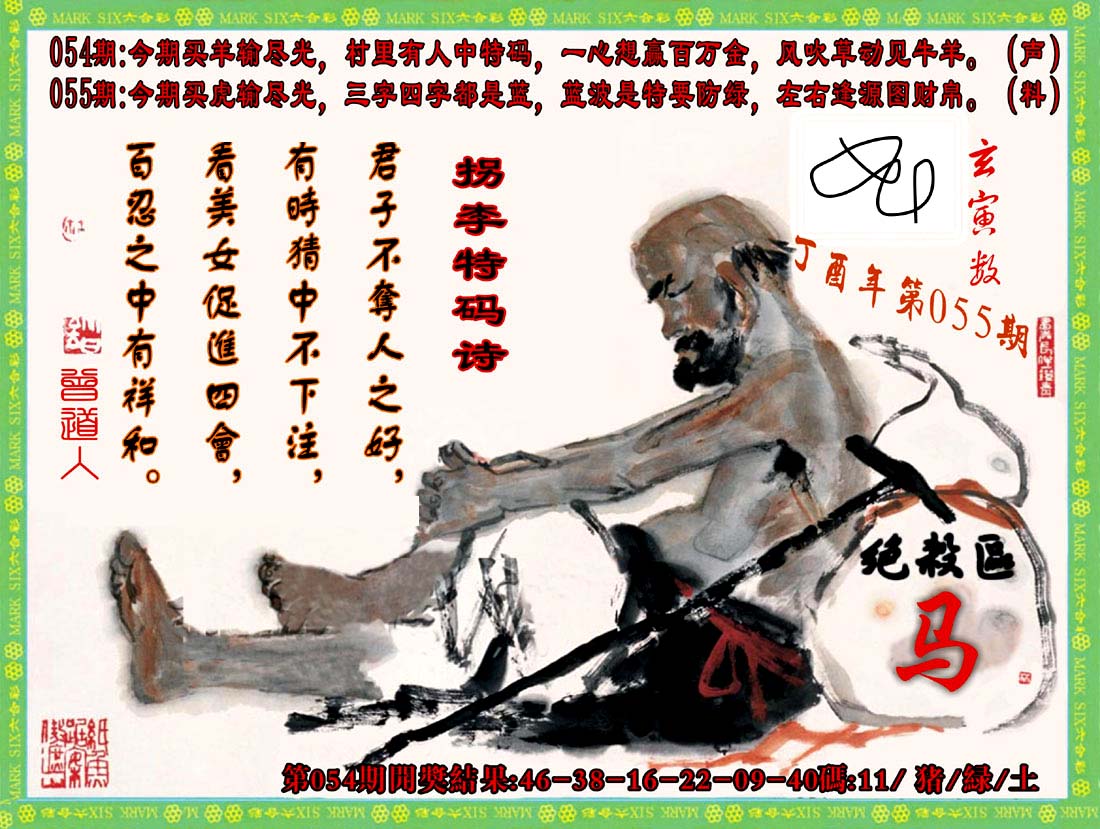 MARK SIX六合彩 MARK SIX六合彩 MARK SIX六合彩 MARK SIX六合彩 MARK SIX六合彩 MARK SIX六合彩
054期:今期买羊输尽光，村里有人中特码，一心想赢百万金，风吹草动见牛羊。（声）
055期:今期买虎输尽光，三字四字都是蓝，蓝波是特要防绿，左右逢源图财帛。（料）
玄寅数
丁酉年第055期
拐李特码诗
君子不奪人之好，
有時猜中不下注，
看美女促進四會，
百忍之中有祥和。
曾道人
绝殺區
马
第054期開獎結果:46-38-16-22-09-40碼:11/ 猪/緑/土